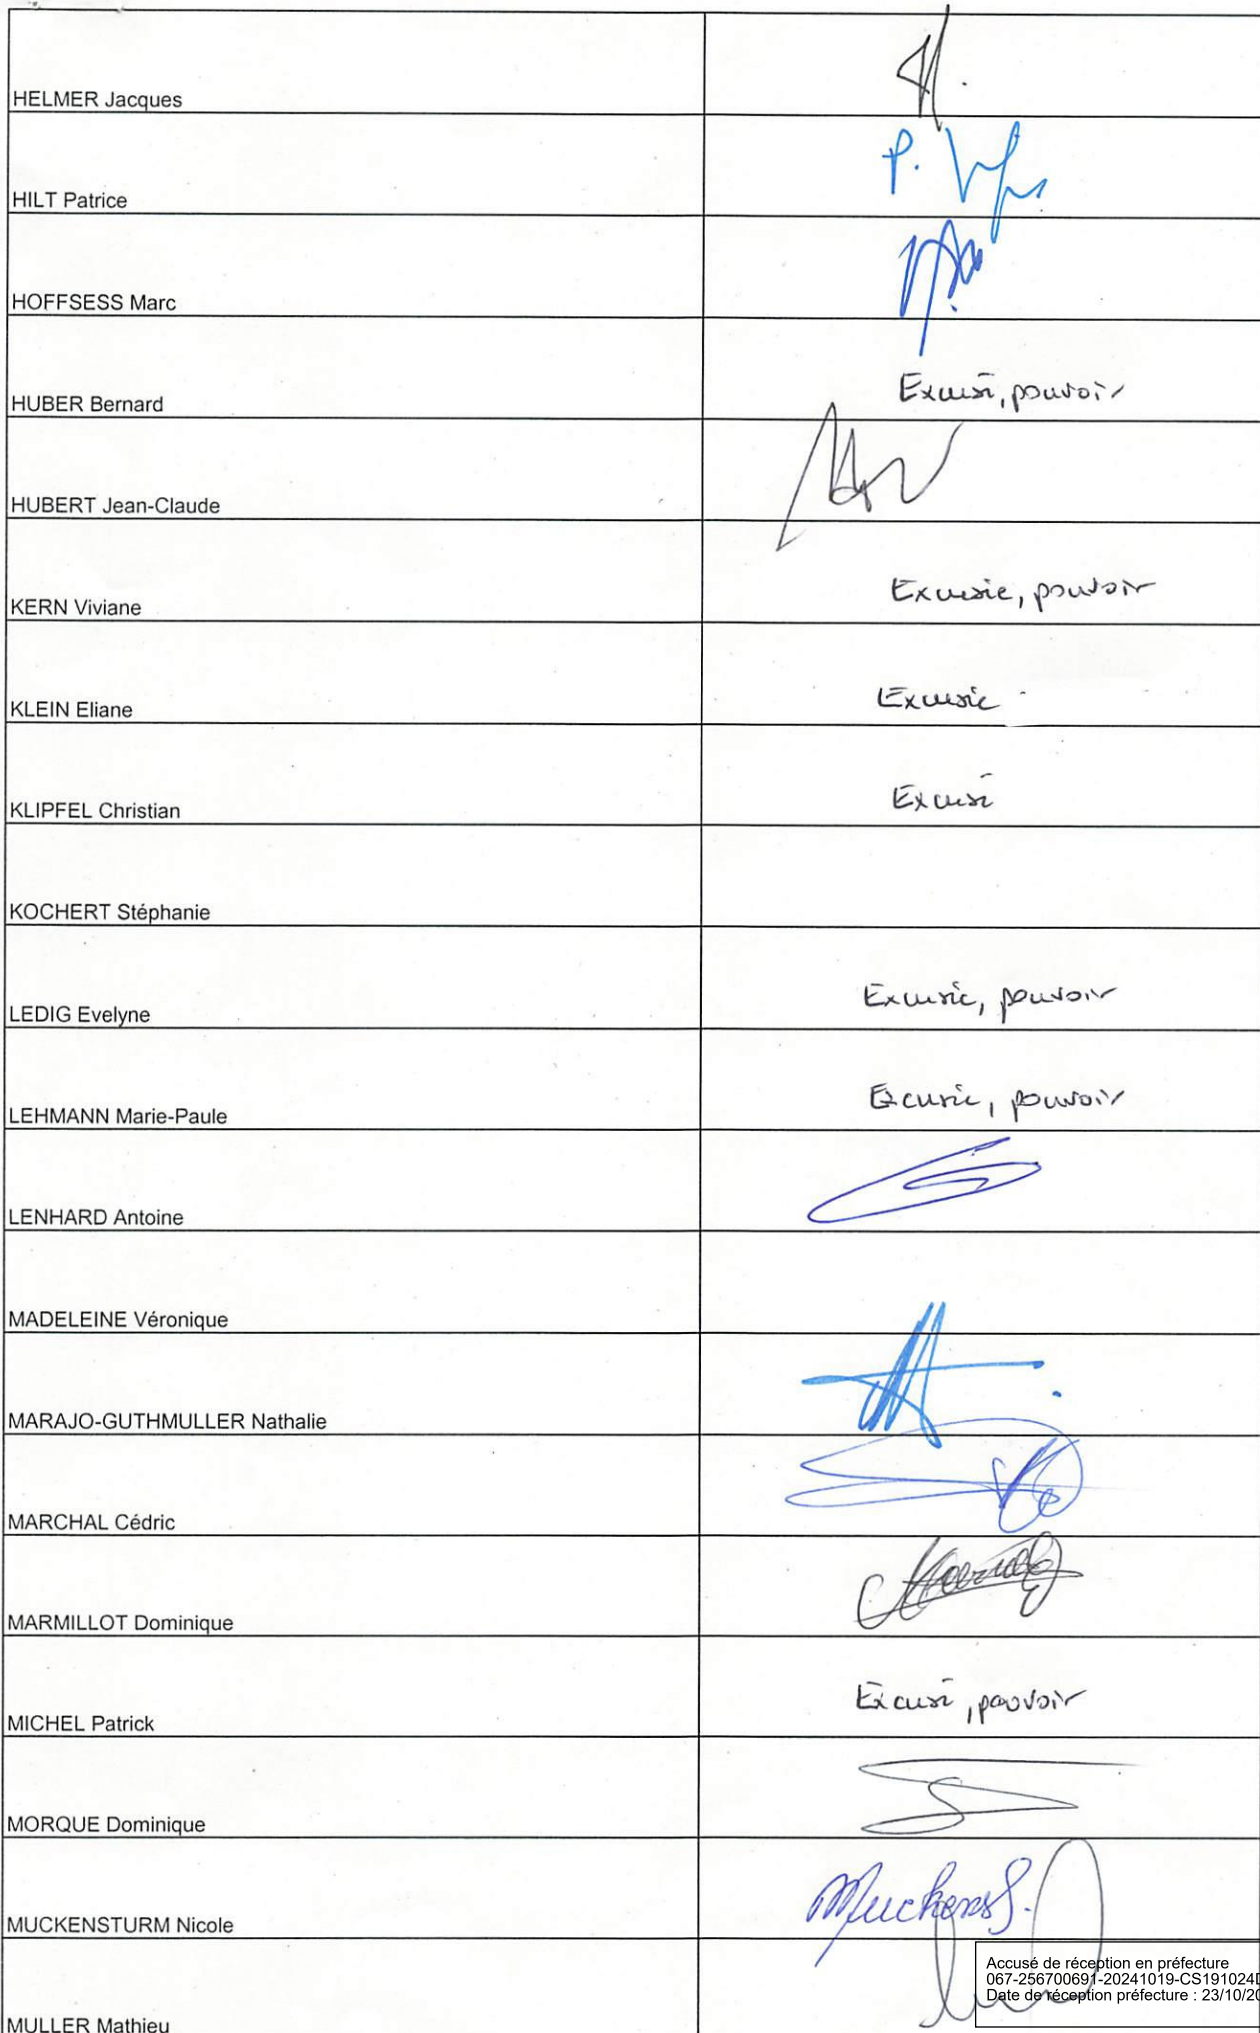 HELMER Jacques
HILT Patrice
P.
HOFFSESS Marc
HUBER Bernard
Excusé, pouvoir
HUBERT Jean-Claude
KERN Viviane
Excusée, pouvoir
KLEIN Eliane
Excusée
KLIPFEL Christian
Excusé
KOCHERT Stéphanie
LEDIG Evelyne
Excusée, pouvoir
LEHMANN Marie-Paule
Excusée, pouvoir
LENHARD Antoine
MADELEINE Véronique
MARAJO-GUTHMULLER Nathalie
MARCHAL Cédric
MARMILLOT Dominique
MICHEL Patrick
Excusé, pouvoir
MORQUE Dominique
MUCKENSTURM Nicole
MULLER Mathieu
Accusé de réception en préfecture
067-256700691-20241019-CS191024D
Date de réception préfecture : 23/10/20